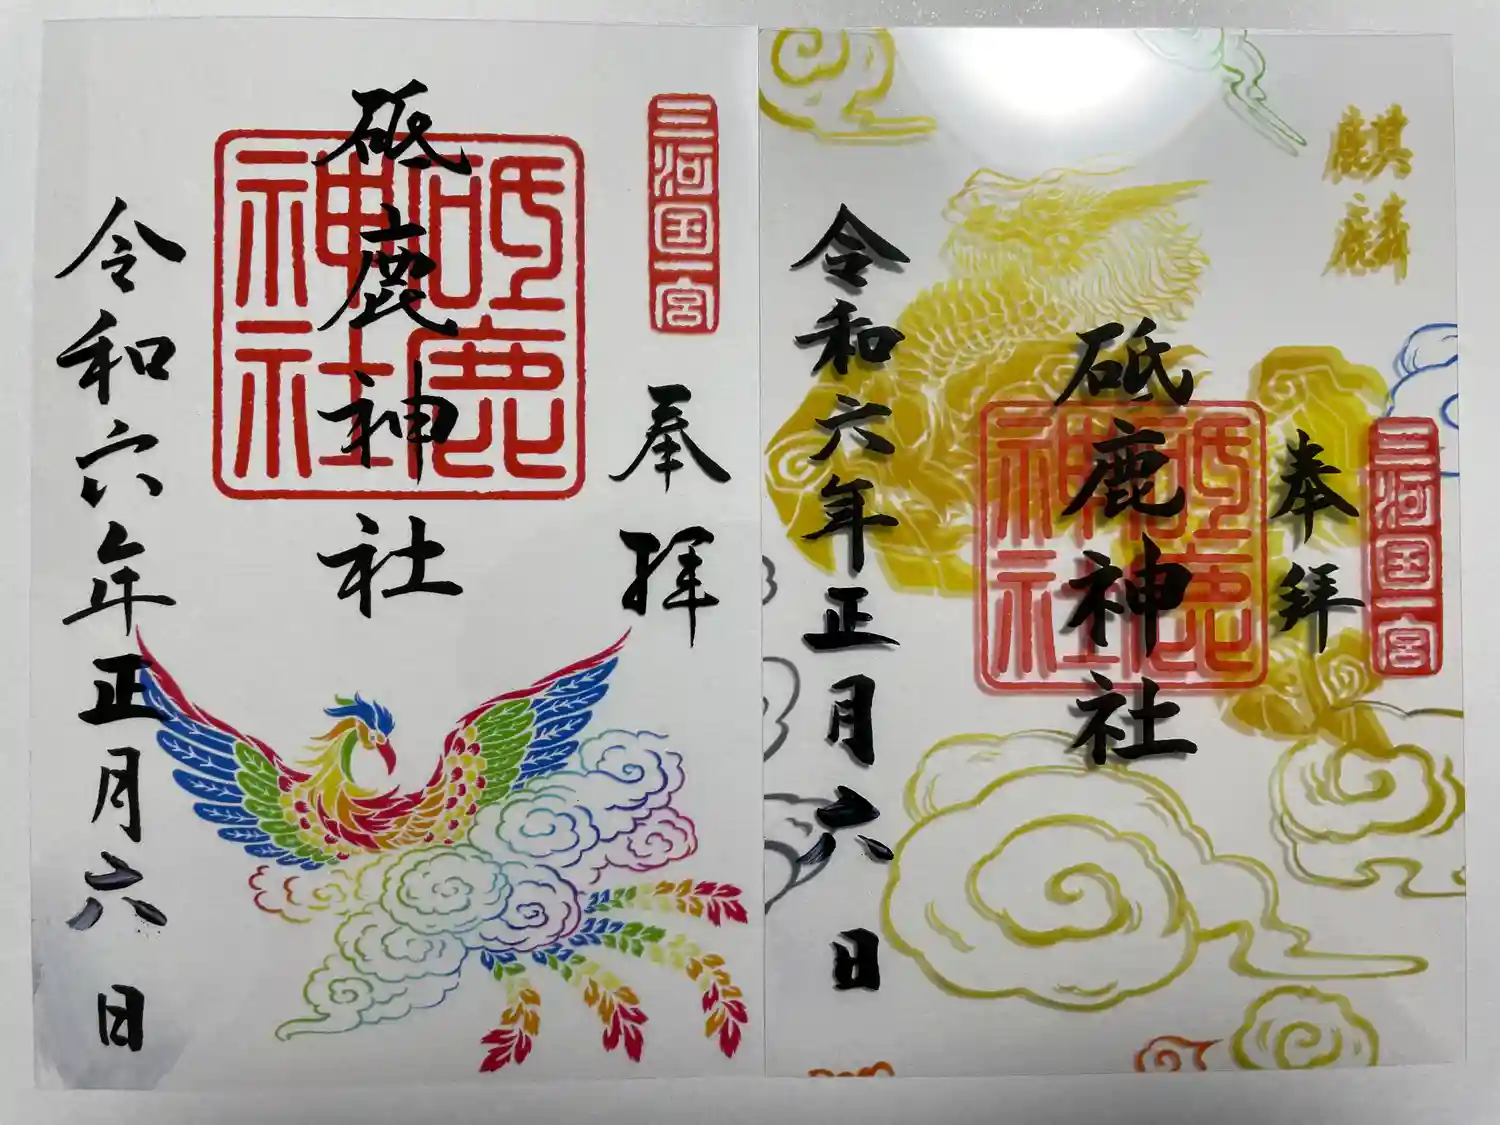 三河国一宮
奉拝
砥鹿神社
砥鹿神社
令和六年正月六日
麒麟
三河国一宮
奉拝
砥鹿神社
砥鹿神社
令和六年正月六日